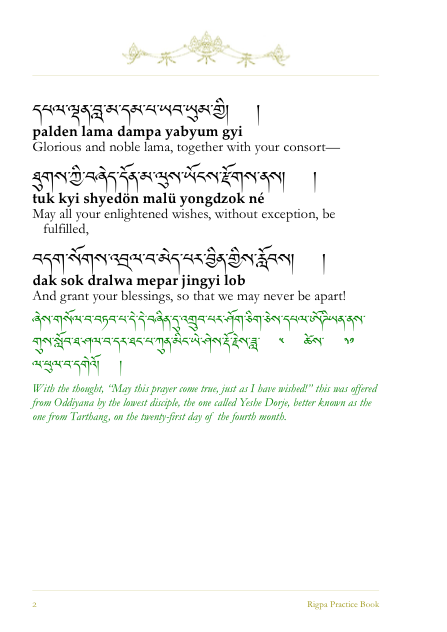 དཔལ་ལྡན་བླ་མ་དམ་པ་ཡབ་ཡུམ་གྱི། །
palden lama dampa yabyum gyi
Glorious and noble lama, together with your consort—
ཐུགས་ཀྱི་བཞེད་དོན་མ་ལུས་ཡོངས་རྫོགས་ནས། །
tuk kyi shyedön malü yongdzok né
May all your enlightened wishes, without exception, be
fulfilled,
བདག་སོགས་འབྲལ་བ་མེད་པར་བྱིན་གྱིས་རློབས། །
dak sok dralwa mepar jingyi lob
And grant your blessings, so that we may never be apart!
ཞེས་གསོལ་བ་བཏབ་པ་དེ་དེ་བཞིན་དུ་འགྲུབ་པར་ཤོག་ཅིག་ཅེས་དཔལ་ཨོ་ཌི་ཡན་ནས་
གུས་སློབ་ཐ་ཤལ་བ་དར་ཐང་པ་ཀུན་མིང་ཡེ་ཤེས་རྡོ་རྗེས་ཟླ་ ༤ ཚེས་ ༢༡
ལ་ཕུལ་བ་དགེའོ། །
With the thought, “May this prayer come true, just as I have wished!” this was offered
from Oddiyana by the lowest disciple, the one called Yeshe Dorje, better known as the
one from Tarthang, on the twenty-first day of the fourth month.
2
Rigpa Practice Book